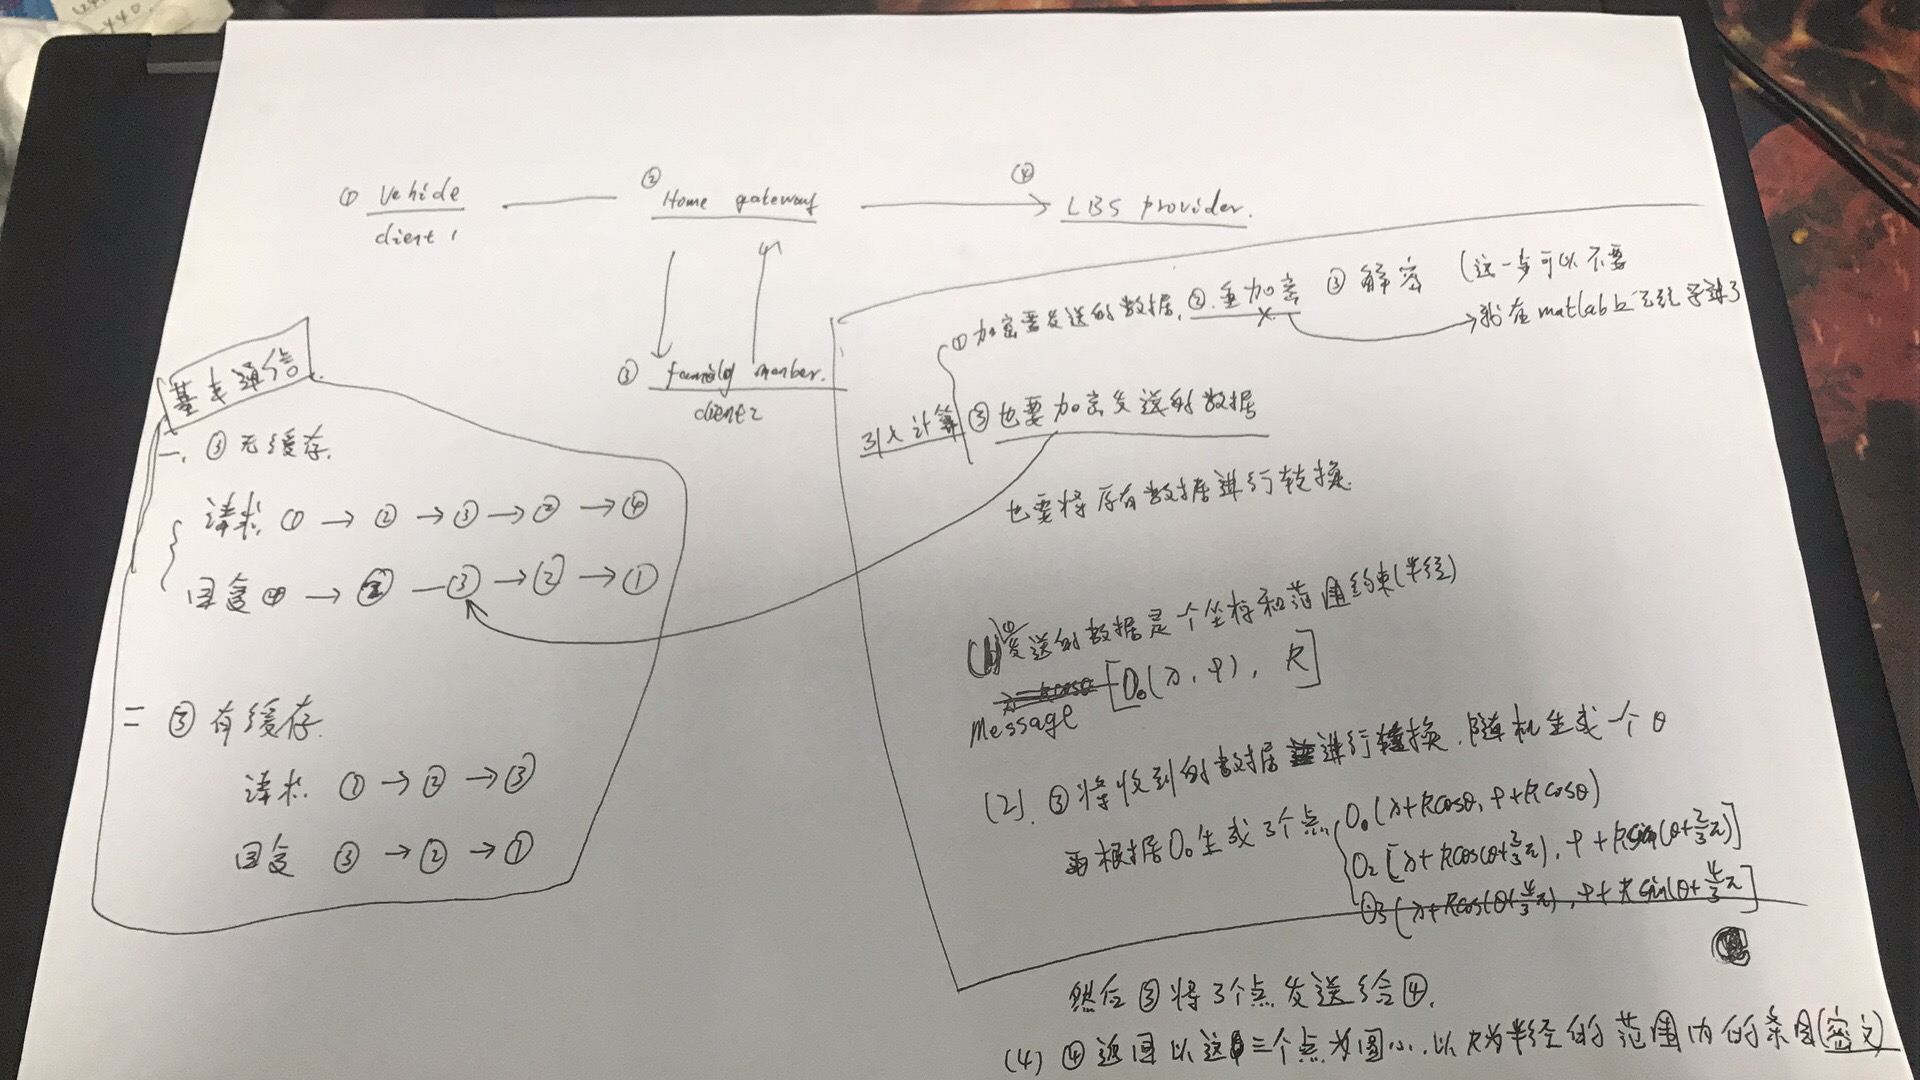 ① Vehicle
client 1
② Home gateway
④ LBS provider.
③ family member.
client 2
基本通信
一. ③ 无缓存.
请求 ① → ② → ③ → ② → ④
回复 ④ → ② — ③ → ② → ①
二 ③ 有缓存.
请求. ① → ② → ③
回复 ③ → ② → ①
引入计算
① 加密要发送的数据. ② 重加密 ③ 解密 (这一步可以不要
→ 我在matlab上已经实现了
③ 也要加密发送的数据
也要将所有数据进行转换
(1) ① 发送的数据是个坐标和范围约束(半径)
Message [O₀(λ, φ), R]
(2). ③ 将收到的数据进行转换. 随机生成一个 θ
再根据O₀生成3个点
O₀(λ+Rcosθ, φ+Rcosθ)
O₂[λ+Rcos(θ+2/3π), φ+Rsin(θ+2/3π)]
O₃[λ+Rcos(θ+4/3π), φ+Rsin(θ+4/3π]
然后 ③ 将3个点发送给④.
(4) ④ 返回以这三个点为圆心. 以R为半径的范围内的条目(密文)